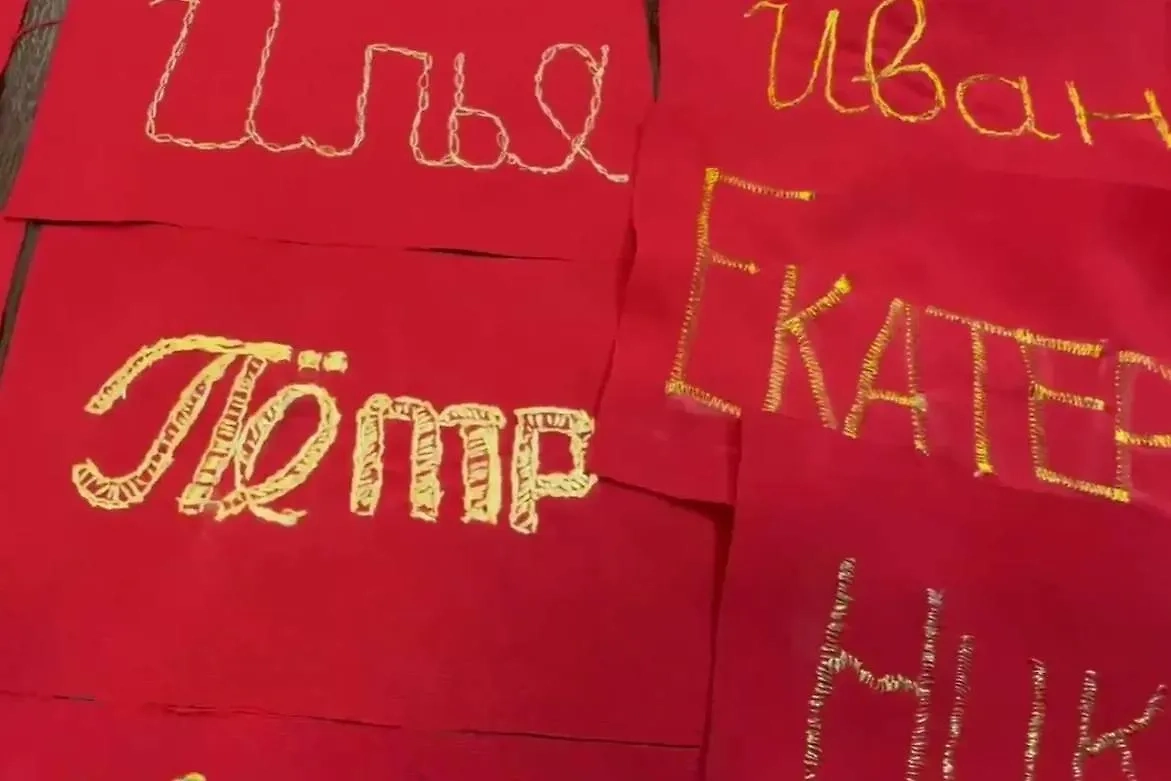 Илья
Иван
ЕКАТЕР
Пётр